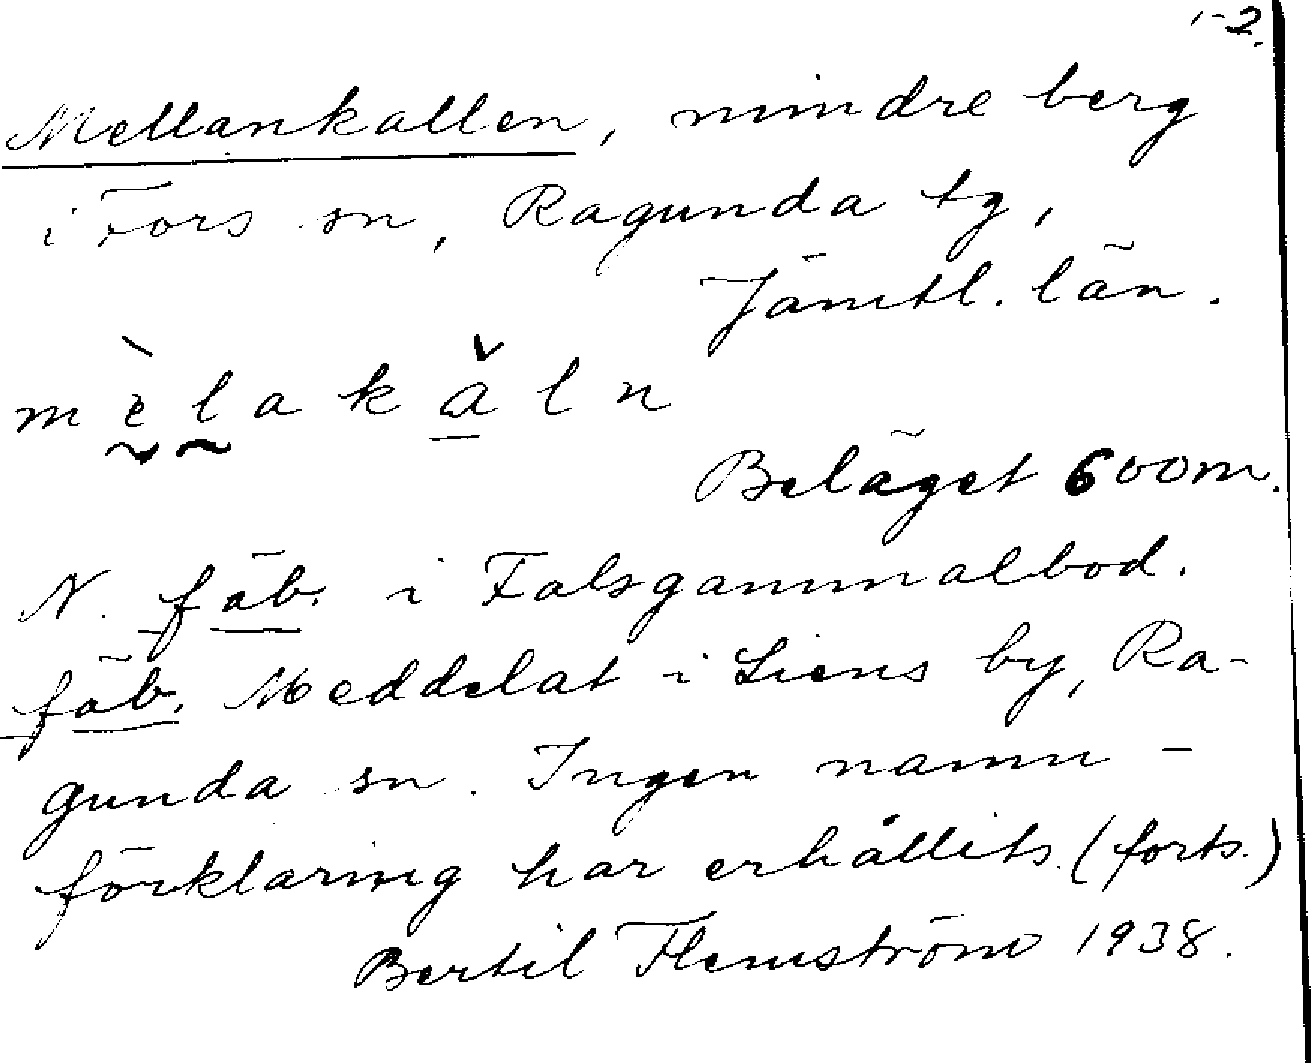 1-2.
Mellankallen, mindre berg
i Fors sn, Ragunda tg,
Jämtl. län.
mèlakǎln
Beläget 600m.
N. fäb. i Falsgammalbod.
fäb. Meddelat i Liens by, Ra-
gunda sn. Ingen namn-
förklaring har erhållits. (forts.)
Bertil Flemström 1938.